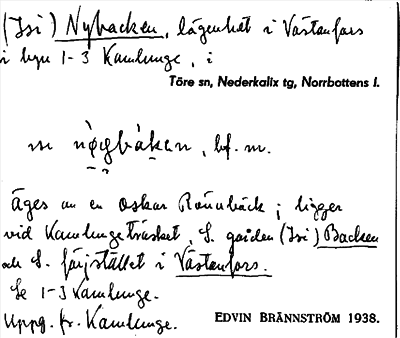 (Isi) Nybacken, lägenhet i Västanfors
i byn 1-3 Kamlunge, i
Töre sn, Nederkalix tg, Norrbottens l.
bf. m.
äges av en Oskar Rönnbäck; ligger
vid Kamlungeträsket, S. gården (Isi) Backen
och S. färjstället i Västanfors.
Se 1-3 Kamlunge.
Uppg. fr. Kamlunge.
EDVIN BRÄNNSTRÖM 1938.